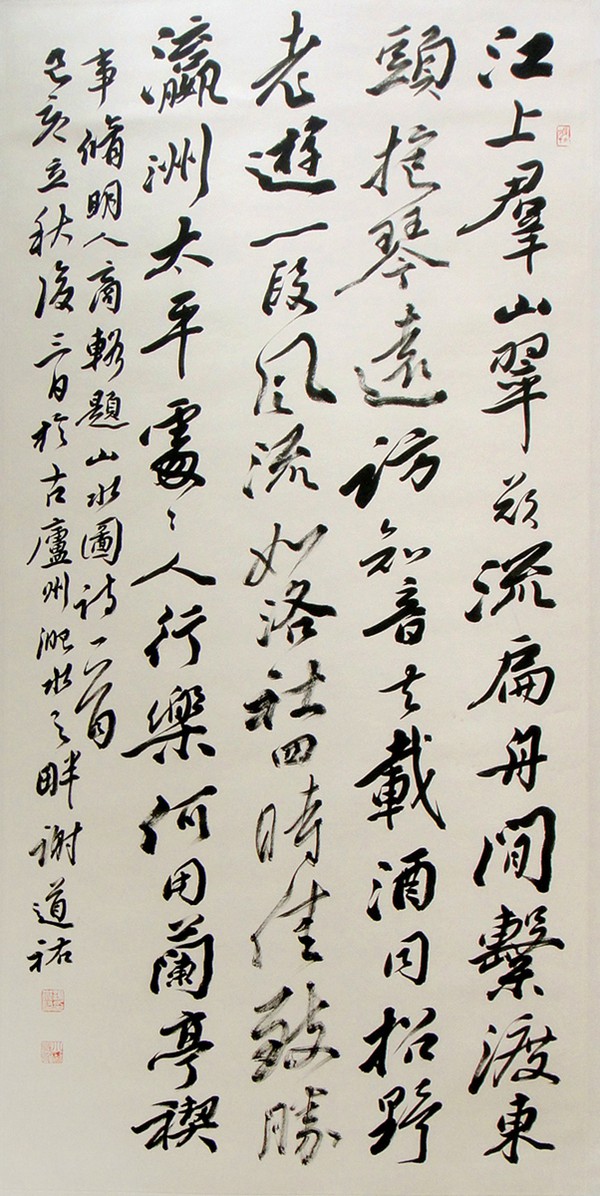 江上羣山翠欲流扁舟閒繫渡東
頭抱琴遠訪知音去載酒同招野
老遊一段風流如洛社四時佳致勝
瀛洲太平處〻人行樂何用蘭亭禊
事脩明人商輅題山水圖詩一首
己亥立秋後三日於古廬州淝水之畔謝道祐